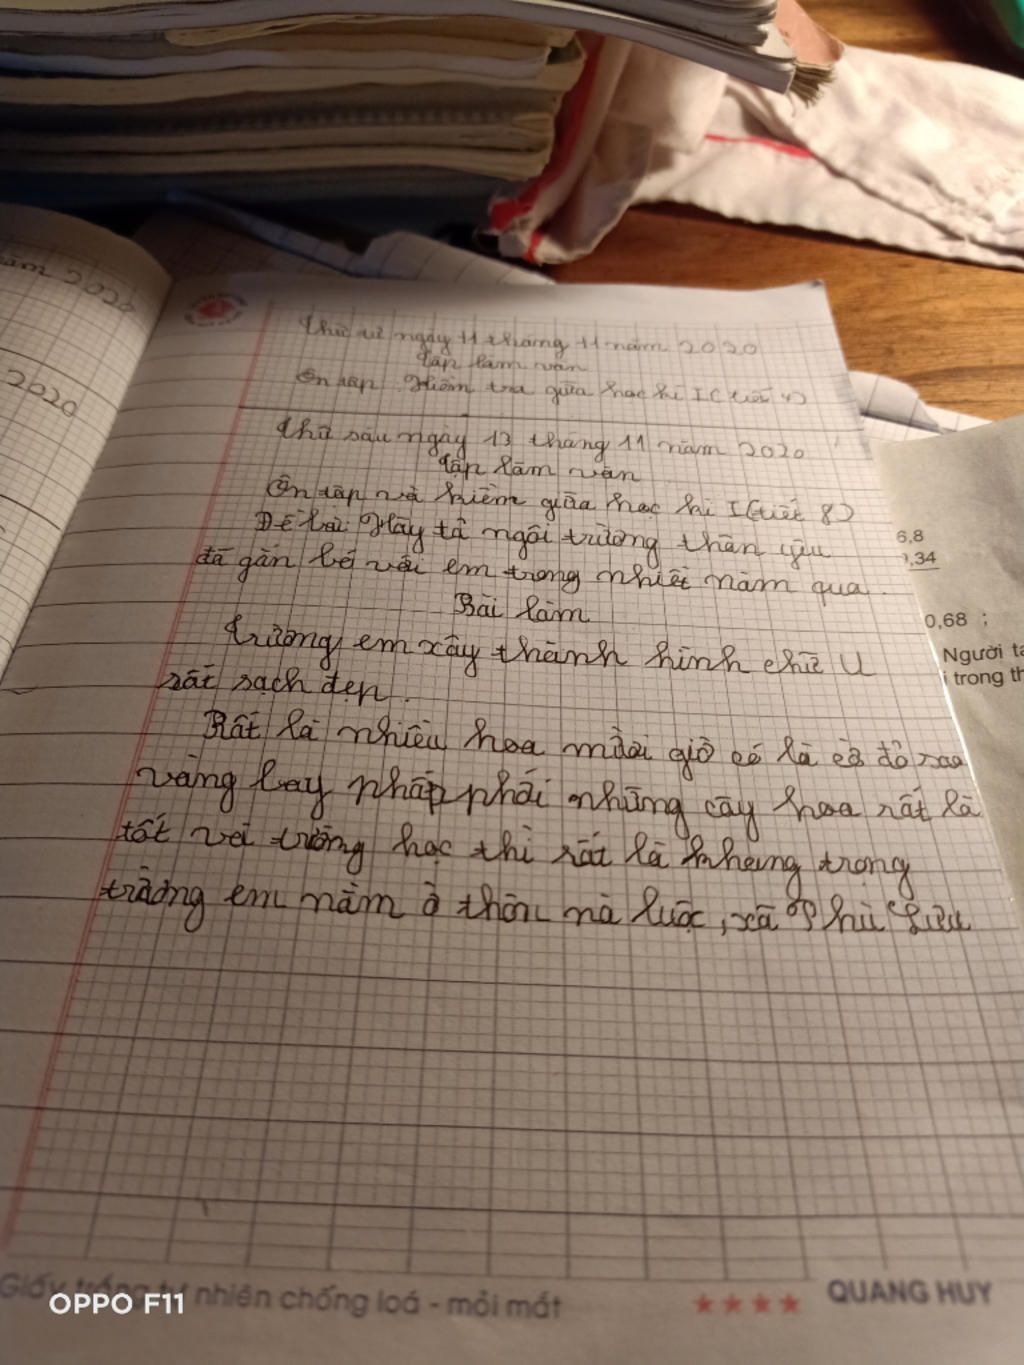 năm 2020
2020
Thứ tư ngày 11 tháng 11 năm 2020
Tập làm văn
Ôn tập kiểm tra giữa học kì I (tiết 4)
Thứ sáu ngày 13 tháng 11 năm 2020
Tập làm văn
Ôn tập và kiểm giữa học kì I (tiết 8)
Đề bài: Hãy tả ngôi trường thân yêu
đã gắn bó với em trong nhiều năm qua.
Bài làm
Trường em xây thành hình chữ U
rất sạch đẹp.
Rất là nhiều hoa mười giờ có lá cờ đỏ sao
vàng bay phấp phới những cây hoa rất là
tốt với trường học thì rất là khang trọng
trường em nằm ở thôn nà luộc, xã Phù Lưu
6,8
,34
0,68 ;
Người ta
i trong th
Giấy trắng tự nhiên chống loá - mỏi mắt
QUANG HUY
OPPO F11